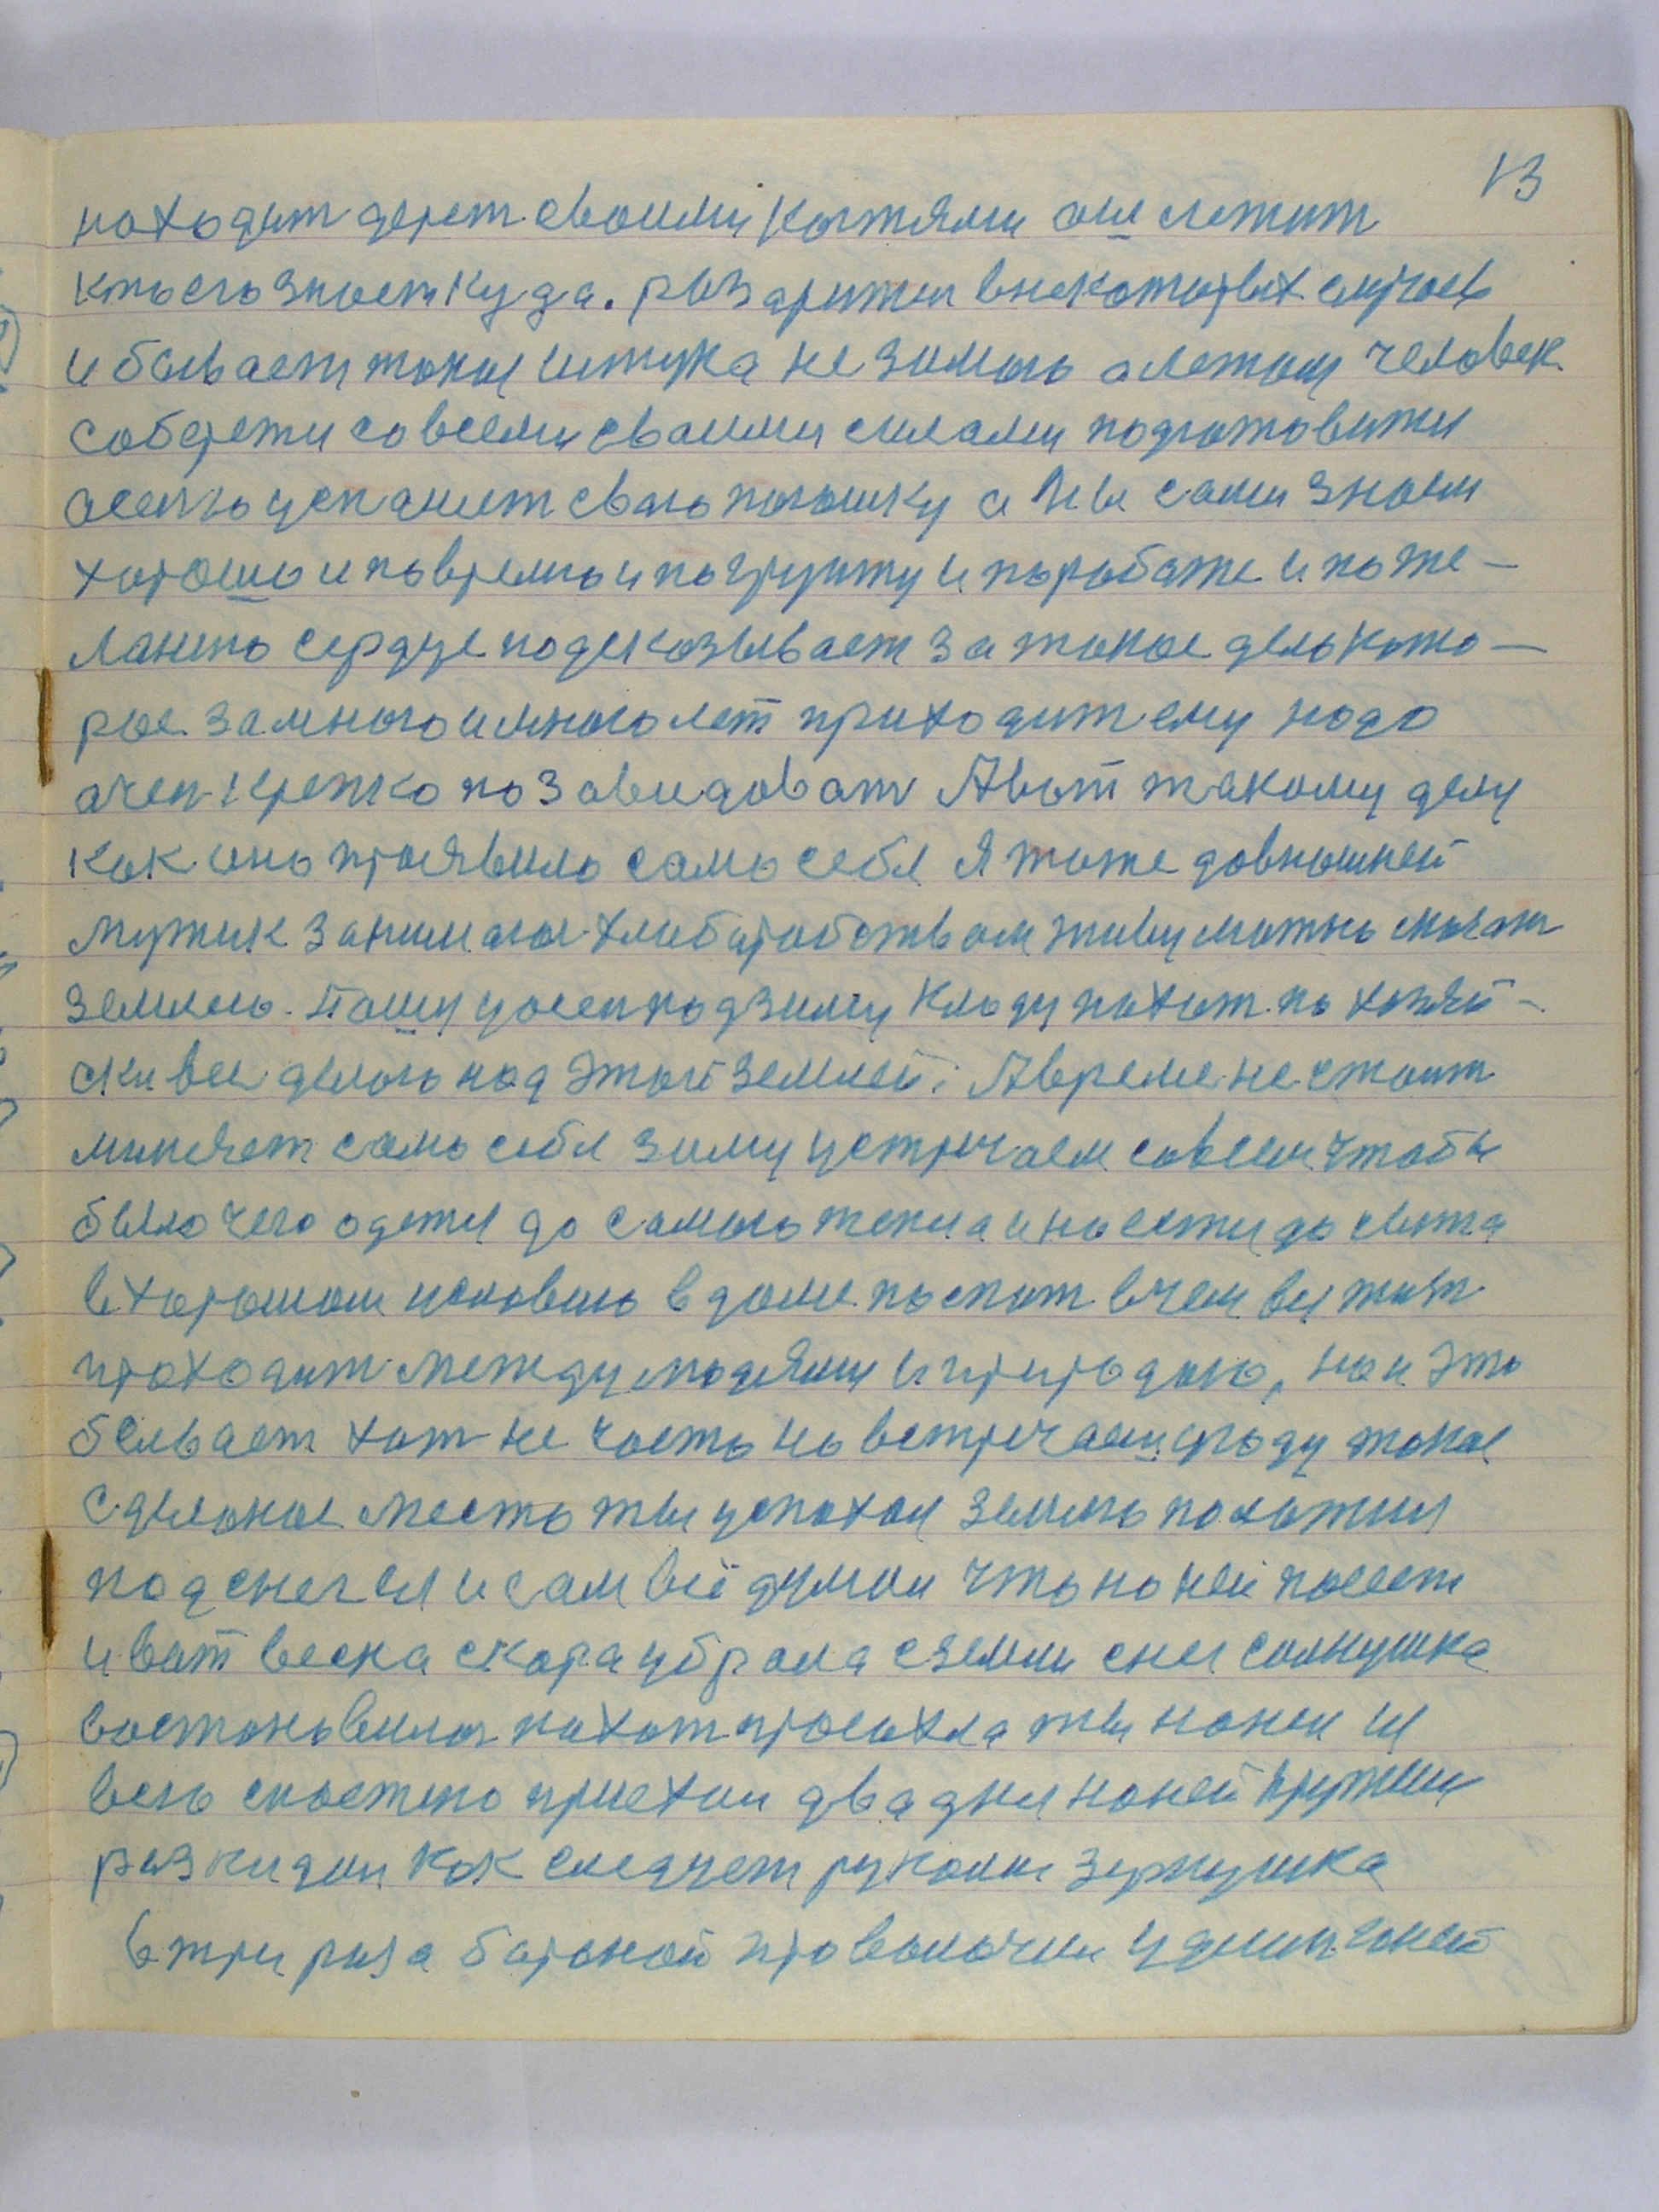 13
находит дерет своими коктями аш летит
кто его знает куда. разарител внекоторых случаев
и бывает такая штука не зимою а летом человек
соберети со всеми своими силами подготовител
асенью успашет сваю пашку а ты сам знаеш
харошо и по время и по грунту и по работе и по же-
ланию сердце подсказывает за такое дело кото-
рое за много и много лет приходит ему надо
очен крепко позавидоват А вот такому делу
как ано проявило само себя Я тоже довношней
мужик занимался хлебаробством живу можно сказат
землею. Пашу у осен под зиму кладу пахат по хозяй-
ски все делаю над этой землей. А время не стоит
меняет само себя зиму устричаем совсем чтобы
было чего одетця до самаго тепла и наестця до сыта
в харошом условию в доме поспат в чем вся жизт
праходит между людями и природаю, но и это
бывает хот не часто но встричаеш у роду такое
сделаное место ты успахал землю положил
под снег ея и сам всё думал что на ней посеет
и вот весна скора убрала сземли снег солнушка
востановилос пахат просохла ты на ней ея
всю снастею приехал два дня на ней кружил
разкидал как следует руками зернушка
в три раза бараной проволочил удилил ей